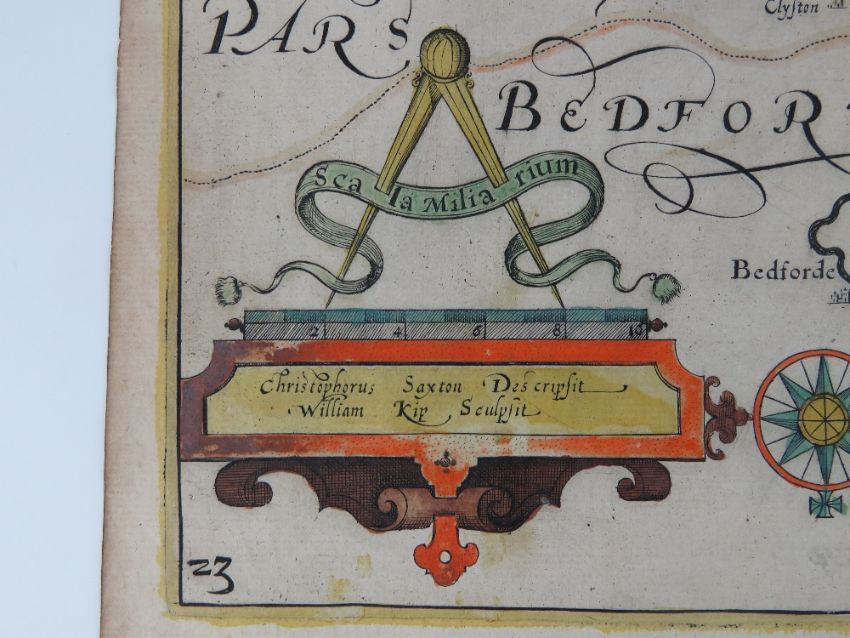 Clyston
PARS
BEDFOR
Scala Miliarium
Bedforde
2 4 6 8 10
Christophorus Saxton Descripsit
William Kip Sculpsit
23